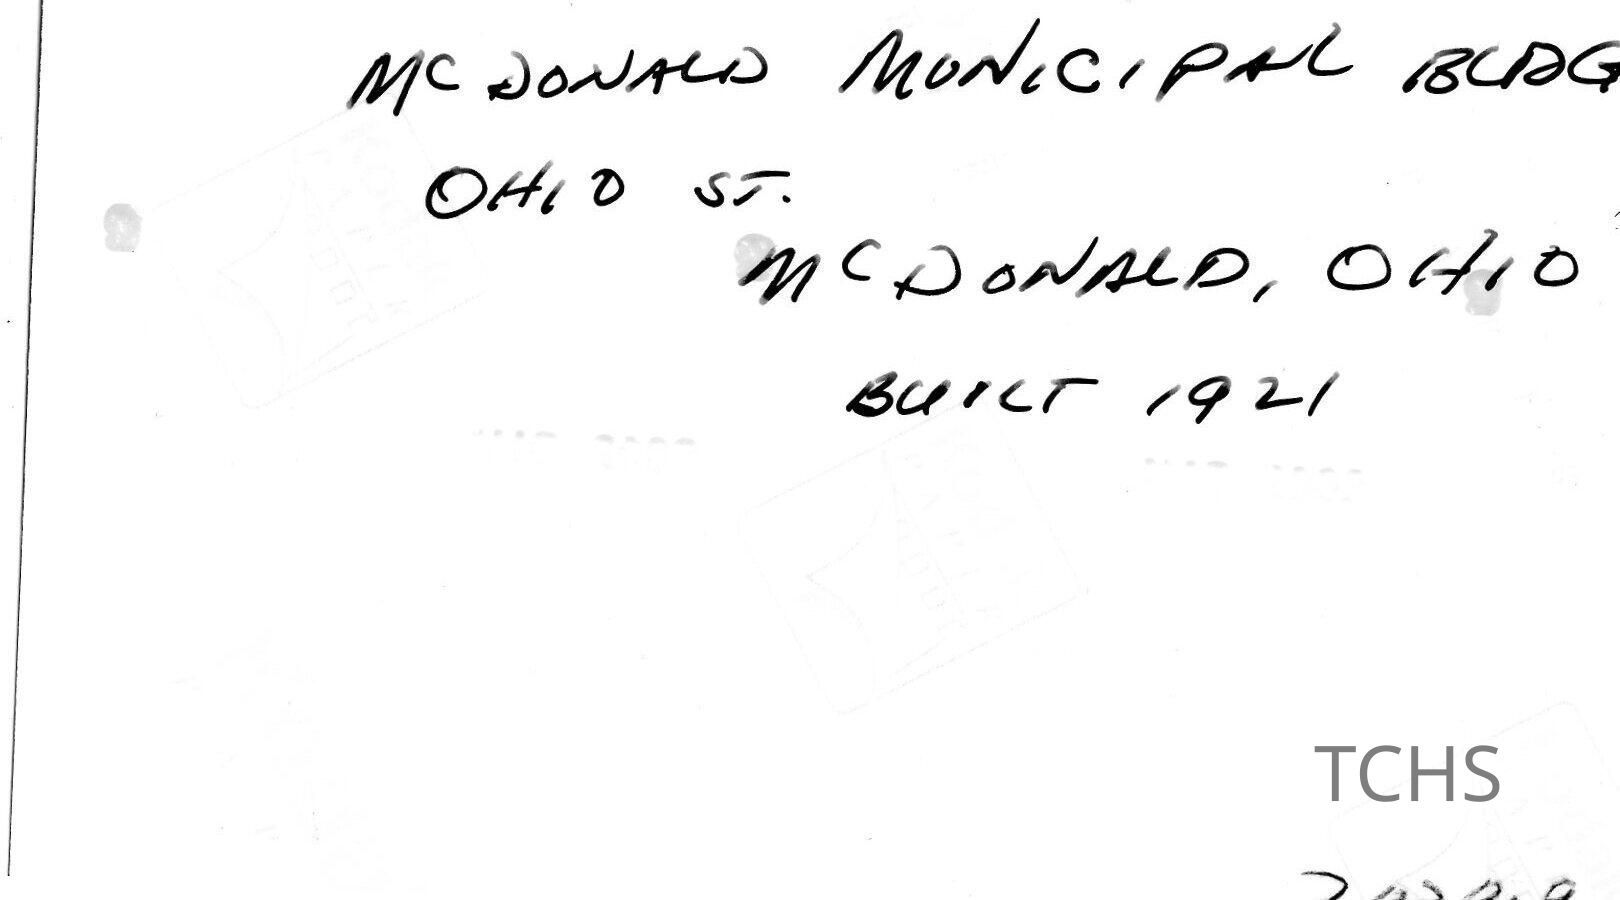 McDONALD MUNICIPAL BLDG
OHIO ST.
McDONALD, OHIO
BUILT 1921
TCHS